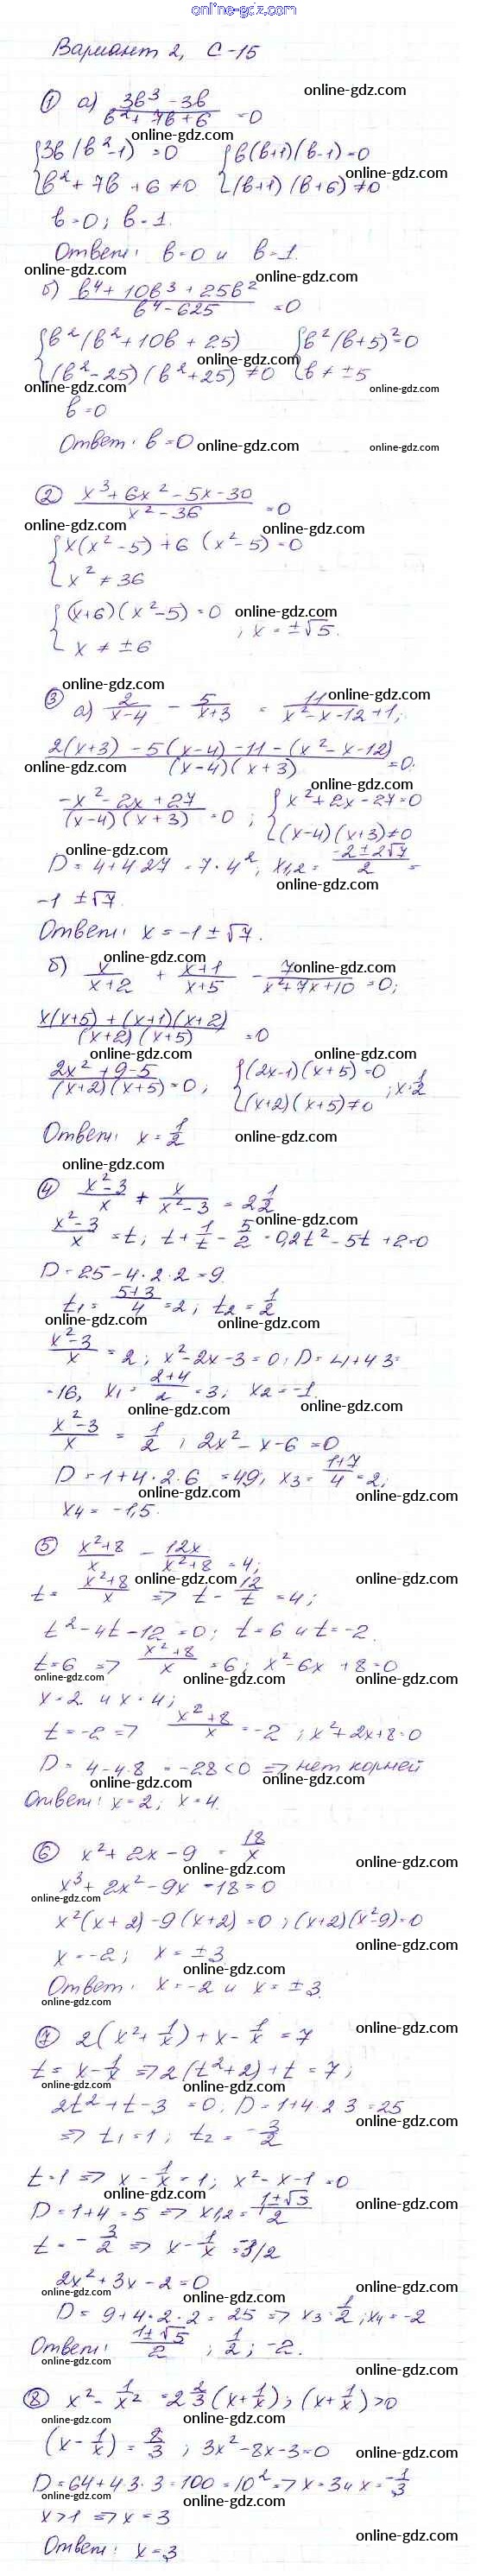 online-gdz.com
Вариант 2, С-15
① а) (3b³ - 3b)/(b² + 7b + 6) = 0
online-gdz.com
online-gdz.com
{3b(b² - 1) = 0 {b(b+1)(b-1) = 0
online-gdz.com
{b² + 7b + 6 ≠ 0 {(b+1)(b+6) ≠ 0
b = 0; b = 1.
Ответ: b = 0 и b = 1.
online-gdz.com online-gdz.com
б) (b⁴ + 10b³ + 25b²)/(b⁴ - 625) = 0
{b²(b² + 10b + 25) {b²(b+5)² = 0
online-gdz.com
{(b² - 25)(b² + 25) ≠ 0 {b ≠ ±5
online-gdz.com online-gdz.com
b = 0
Ответ: b = 0 online-gdz.com online-gdz.com
② (x³ + 6x² - 5x - 30)/(x² - 36) = 0
online-gdz.com online-gdz.com
{x(x² - 5) + 6(x² - 5) = 0
{x² ≠ 36
{(x+6)(x² - 5) = 0 online-gdz.com
; x = ±√5.
{x ≠ ±6
online-gdz.com
③ а) 2/(x-4) - 5/(x+3) = 11/(x² - x - 12) + 1;
online-gdz.com
(2(x+3) - 5(x-4) - 11 - (x² - x - 12))/((x-4)(x+3)) = 0.
online-gdz.com
online-gdz.com
(-x² - 2x + 27)/((x-4)(x+3)) = 0; {x² + 2x - 27 = 0
{(x-4)(x+3) ≠ 0
online-gdz.com
D = 4 + 4·27 = 7·4², x1,2 = (-2 ± 2√7)/2 =
online-gdz.com
-1 ± √7.
Ответ: x = -1 ± √7.
online-gdz.com
б) x/(x+2) + (x+1)/(x+5) - 7/(x² + 7x + 10) = 0;
online-gdz.com
(x(x+5) + (x+1)(x+2))/((x+2)(x+5)) = 0
online-gdz.com online-gdz.com
(2x² + 9 - 5)/((x+2)(x+5)) = 0; {(2x-1)(x+5) = 0
{(x+2)(x+5) ≠ 0 ; x = 1/2
Ответ: x = 1/2 online-gdz.com
online-gdz.com
④ (x² - 3)/x + x/(x² - 3) = 2 1/2
online-gdz.com
(x² - 3)/x = t; t + 1/t - 5/2 = 0, 2t² - 5t + 2 = 0
D = 25 - 4·2·2 = 9
t₁ = (5+3)/4 = 2; t₂ = 1/2
online-gdz.com online-gdz.com
(x² - 3)/x = 2; x² - 2x - 3 = 0; D = 4 + 4·3 =
= 16, x₁ = (2+4)/2 = 3; x₂ = -1.
online-gdz.com online-gdz.com
(x² - 3)/x = 1/2; 2x² - x - 6 = 0
D = 1 + 4·2·6 = 49; x₃ = (1+7)/4 = 2;
online-gdz.com online-gdz.com
x₄ = -1,5.
⑤ (x² + 8)/x - 12x/(x² + 8) = 4;
online-gdz.com online-gdz.com
t = (x² + 8)/x ⇒ t - 12/t = 4;
t² - 4t - 12 = 0; t = 6 и t = -2.
t = 6 ⇒ (x² + 8)/x = 6; x² - 6x + 8 = 0
online-gdz.com online-gdz.com online-gdz.com
x = 2 и x = 4;
t = -2 ⇒ (x² + 8)/x = -2; x² + 2x + 8 = 0
D = 4 - 4·8 = -28 < 0 ⇒ нет корней
online-gdz.com online-gdz.com
Ответ: x = 2; x = 4.
⑥ x² + 2x - 9 = 18/x
online-gdz.com online-gdz.com
x³ + 2x² - 9x - 18 = 0
online-gdz.com
x²(x+2) - 9(x+2) = 0; (x+2)(x² - 9) = 0
online-gdz.com
x = -2; x = ±3.
online-gdz.com
Ответ: x = -2 и x = ±3.
online-gdz.com
⑦ 2(x² + 1/x) + x - 1/x = 7
online-gdz.com
t = x - 1/x ⇒ 2(t² + 2) + t = 7;
online-gdz.com online-gdz.com
2t² + t - 3 = 0. D = 1 + 4·2·3 = 25
online-gdz.com
⇒ t₁ = 1; t₂ = -3/2
t = 1 ⇒ x - 1/x = 1; x² - x - 1 = 0
online-gdz.com online-gdz.com
D = 1 + 4 = 5 ⇒ x1,2 = (1 ± √5)/2
t = -3/2 ⇒ x - 1/x = -3/2
2x² + 3x - 2 = 0
online-gdz.com online-gdz.com
D = 9 + 4·2·2 = 25 ⇒ x₃ = 1/2; x₄ = -2
Ответ: (1 ± √5)/2; 1/2; -2.
online-gdz.com online-gdz.com
⑧ x² - 1/x² = 2 2/3 (x + 1/x); (x + 1/x) > 0
online-gdz.com online-gdz.com
(x - 1/x) = 8/3; 3x² - 8x - 3 = 0
online-gdz.com
D = 64 + 4·3·3 = 100 = 10² ⇒ x = 3 и x = -1/3
online-gdz.com online-gdz.com
x > 1 ⇒ x = 3
online-gdz.com
Ответ: x = 3